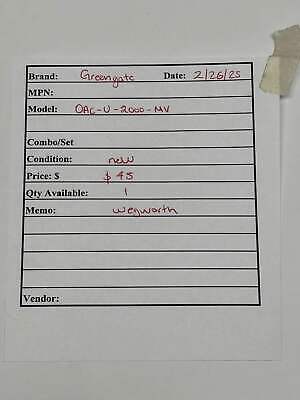 Brand: Greengate Date: 2/26/25
MPN:
Model: OAC-U-2000-MV
Combo/Set
Condition: new
Price: $ $45
Qty Available: 1
Memo: wegworth
Vendor: